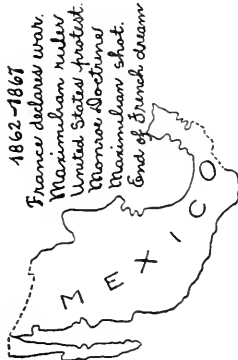 1862-1867
France declares war.
Maximilian ruler
United States protest.
Monroe Doctrine
Maximilian shot.
End of French dream
MEXICO